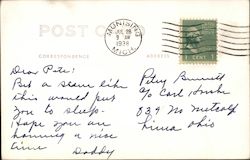 POST CARD
CORRESPONDENCE
ADDRESS
MUNISING
JUL 28
9 AM
1938
MICH.
1 CENT 1
Dear Pete:
But a stem like
this would put
you to sleep.
Hope you are
having a nice
time
Daddy
Petey Bunnell
c/o Carl
839 N Metcalf
Lima Ohio